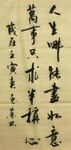 人生哪能盡如意
萬事只求半稱心
歲在壬寅